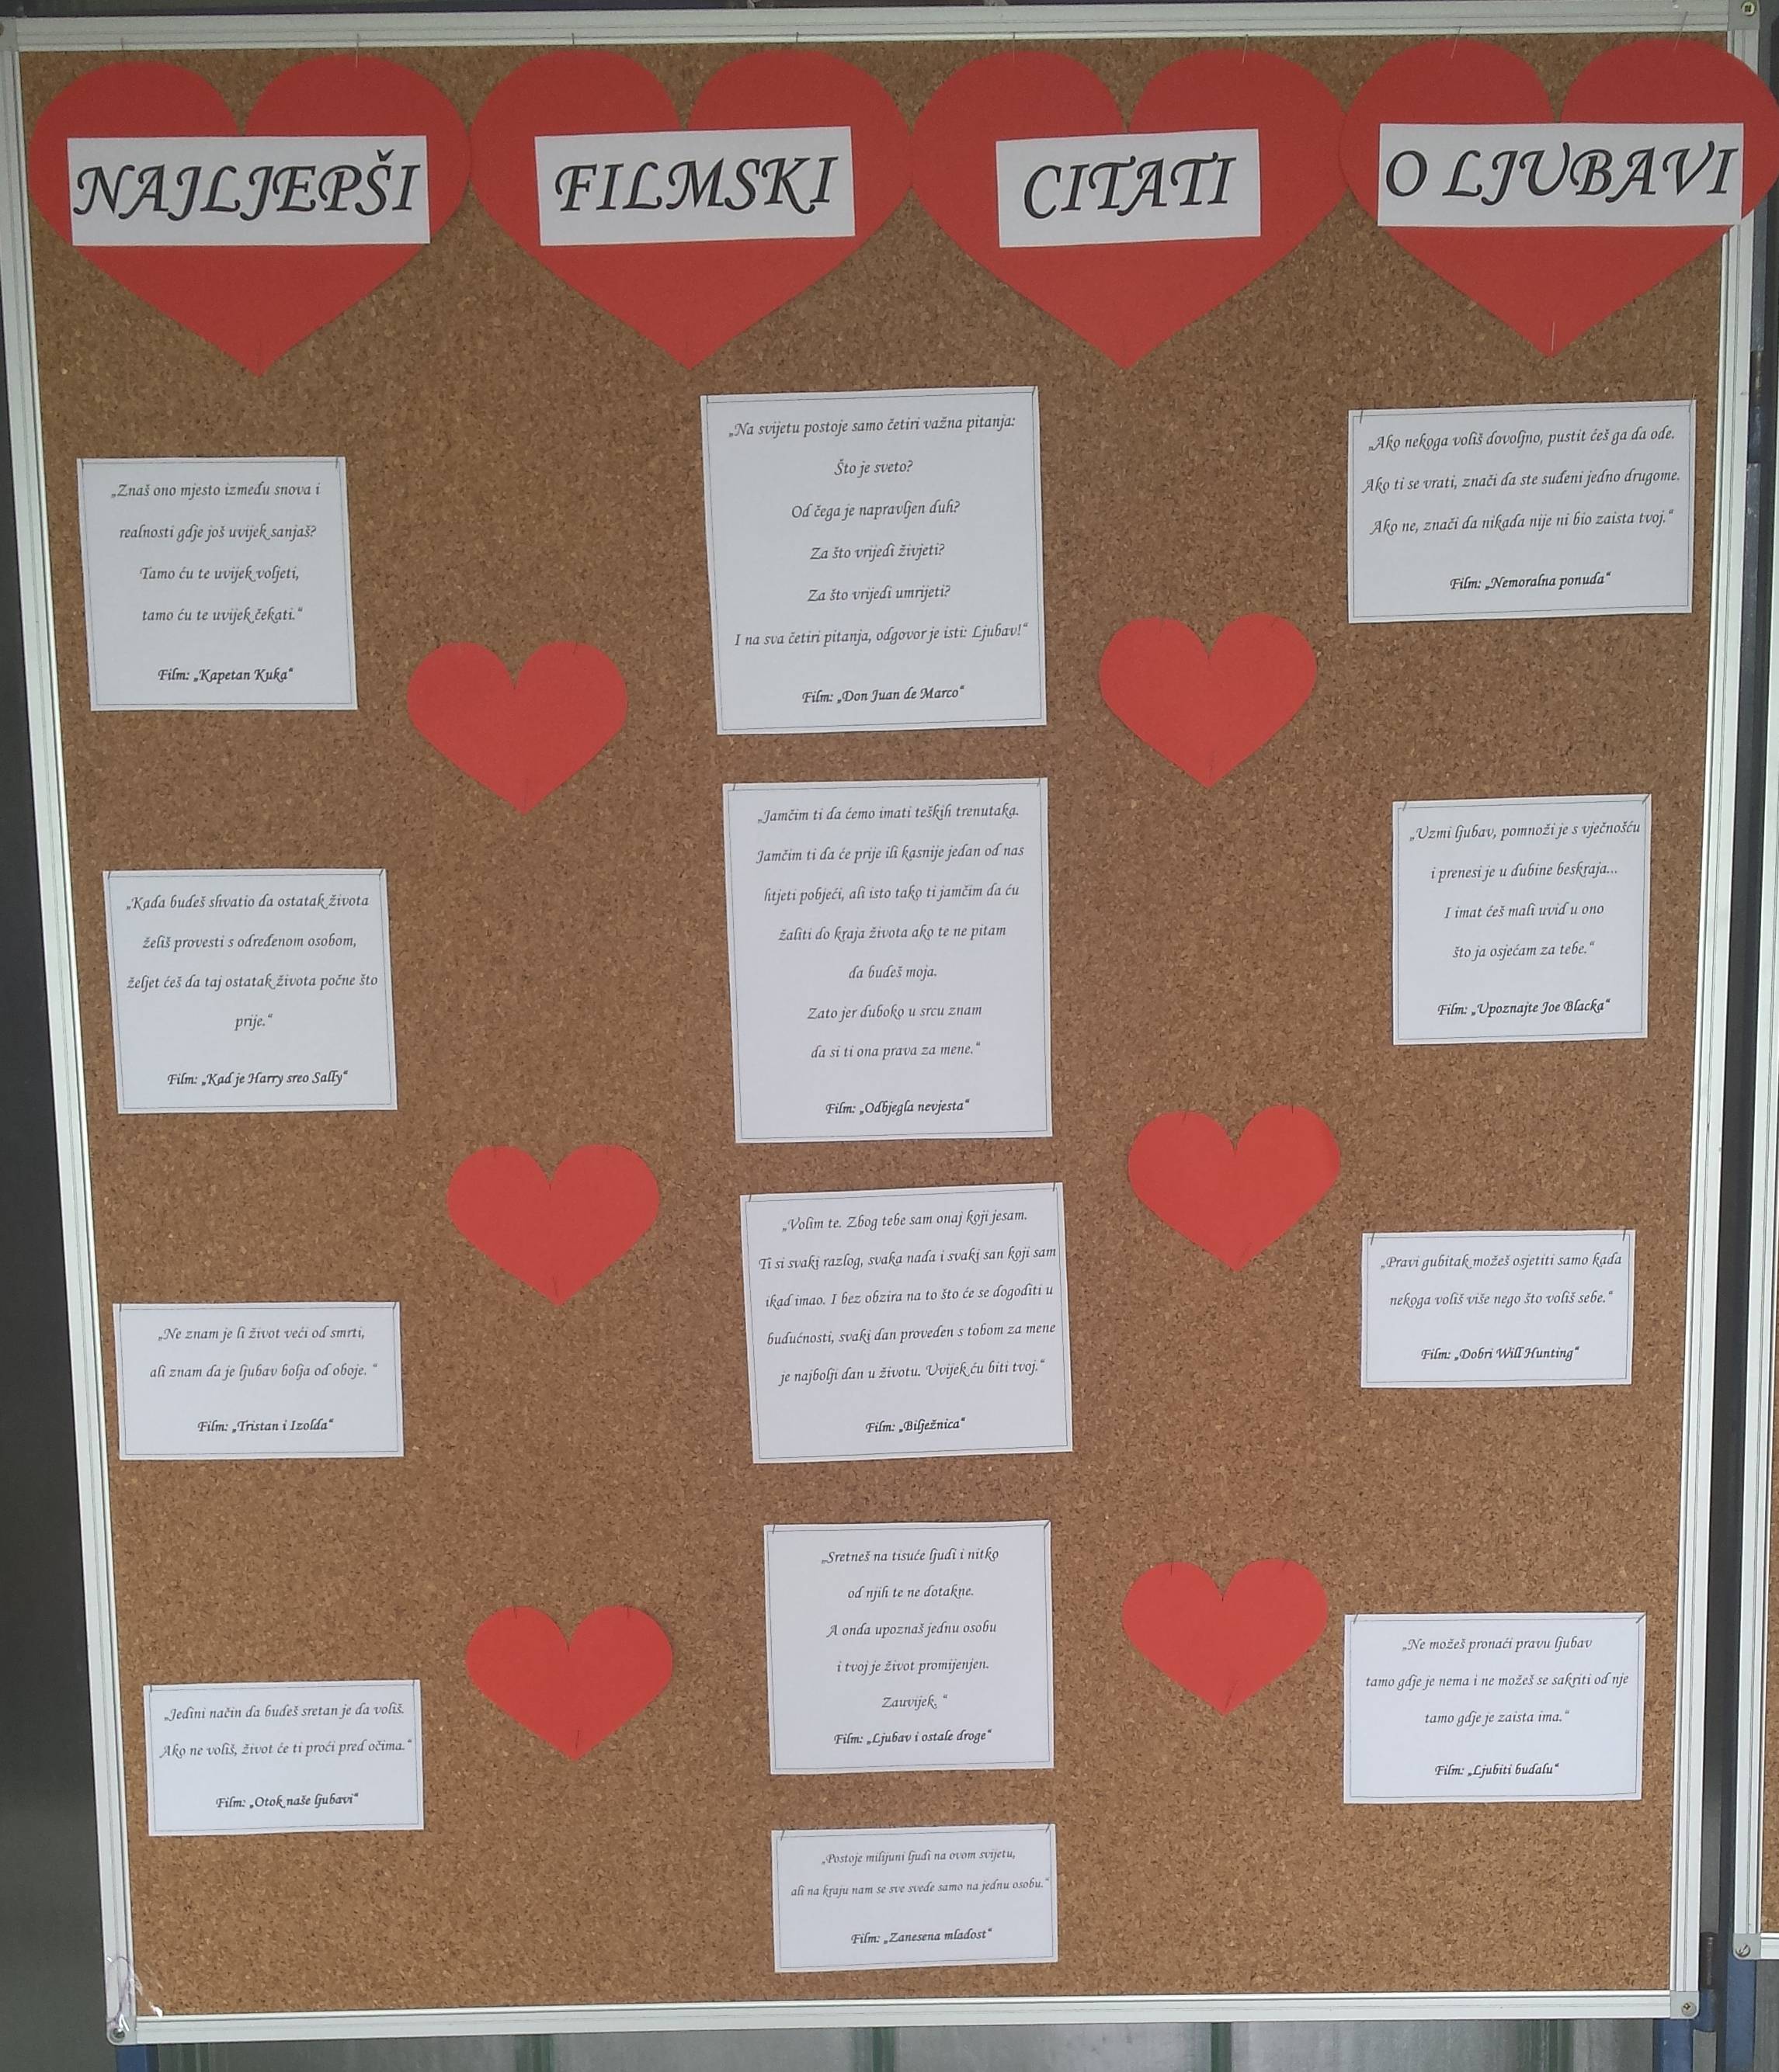 NAJLJEPŠI FILMSKI CITATI O LJUBAVI
„Znaš ono mjesto između snova i
realnosti gdje još uvijek sanjaš?
Tamo ću te uvijek voljeti,
tamo ću te uvijek čekati.“
Film: „Kapetan Kuka“
„Kada budeš shvatio da ostatak života
želiš provesti s određenom osobom,
željet ćeš da taj ostatak života počne što
prije.“
Film: „Kad je Harry sreo Sally“
„Ne znam je li život veći od smrti,
ali znam da je ljubav bolja od oboje. “
Film: „Tristan i Izolda“
„Jedini način da budeš sretan je da voliš.
Ako ne voliš, život će ti proći pred očima.“
Film: „Otok naše ljubavi“
„Na svijetu postoje samo četiri važna pitanja:
Što je sveto?
Od čega je napravljen duh?
Za što vrijedi živjeti?
Za što vrijedi umrijeti?
I na sva četiri pitanja, odgovor je isti: Ljubav!“
Film: „Don Juan de Marco“
„Jamčim ti da ćemo imati teških trenutaka.
Jamčim ti da će prije ili kasnije jedan od nas
htjeti pobjeći, ali isto tako ti jamčim da ću
žaliti do kraja života ako te ne pitam
da budeš moja.
Zato jer duboko u srcu znam
da si ti ona prava za mene.“
Film: „Odbjegla nevjesta“
„Volim te. Zbog tebe sam onaj koji jesam.
Ti si svaki razlog, svaka nada i svaki san koji sam
ikad imao. I bez obzira na to što će se dogoditi u
budućnosti, svaki dan proveden s tobom za mene
je najbolji dan u životu. Uvijek ću biti tvoj.“
Film: „Bilježnica“
„Sretneš na tisuće ljudi i nitko
od njih te ne dotakne.
A onda upoznaš jednu osobu
i tvoj je život promijenjen.
Zauvijek. “
Film: „Ljubav i ostale droge“
„Postoje milijuni ljudi na ovom svijetu,
ali na kraju nam se sve svede samo na jednu osobu.“
Film: „Zanesena mladost“
„Ako nekoga voliš dovoljno, pustit ćeš ga da ode.
Ako ti se vrati, znači da ste suđeni jedno drugome.
Ako ne, znači da nikada nije ni bio zaista tvoj.“
Film: „Nemoralna ponuda“
„Uzmi ljubav, pomnoži je s vječnošću
i prenesi je u dubine beskraja...
I imat ćeš mali uvid u ono
što ja osjećam za tebe.“
Film: „Upoznajte Joe Blacka“
„Pravi gubitak možeš osjetiti samo kada
nekoga voliš više nego što voliš sebe.“
Film: „Dobri Will Hunting“
„Ne možeš pronaći pravu ljubav
tamo gdje je nema i ne možeš se sakriti od nje
tamo gdje je zaista ima.“
Film: „Ljubiti budalu“